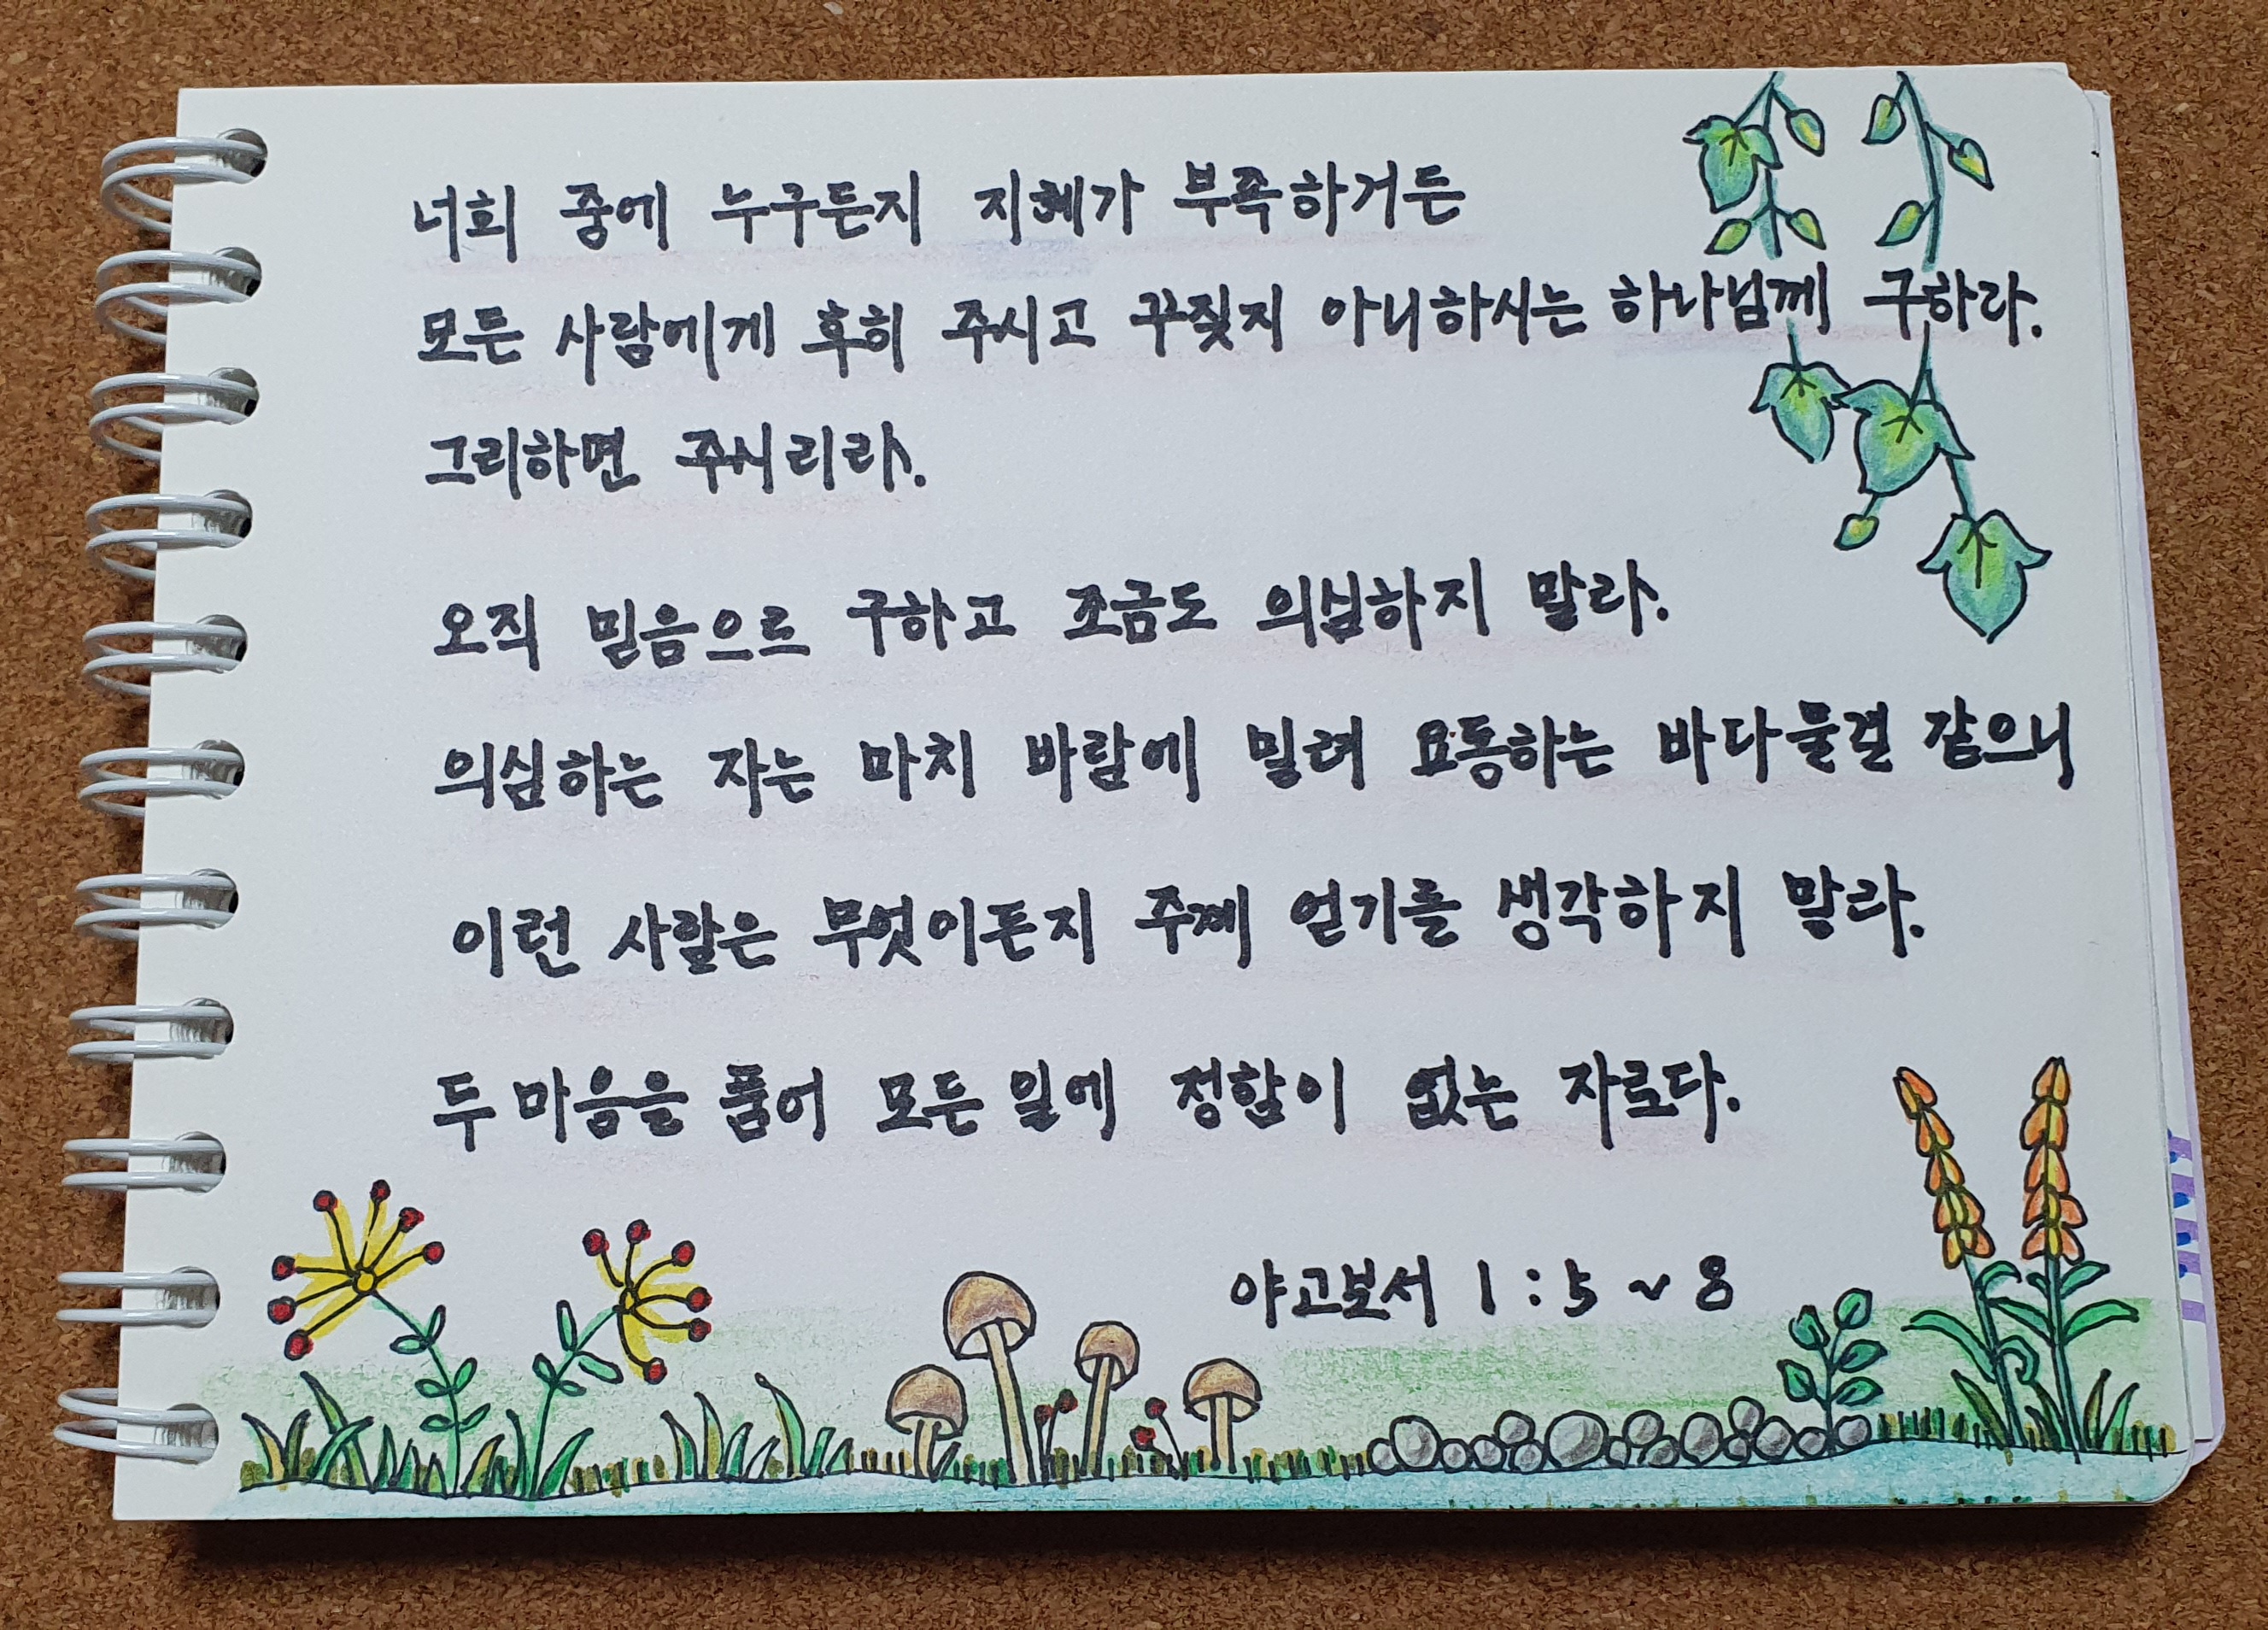 너희 중에 누구든지 지혜가 부족하거든
모든 사람에게 후히 주시고 꾸짖지 아니하시는 하나님께 구하라.
그리하면 주시리라.
오직 믿음으로 구하고 조금도 의심하지 말라.
의심하는 자는 마치 바람에 밀려 요동하는 바다물결 같으니
이런 사람은 무엇이든지 주께 얻기를 생각하지 말라.
두 마음을 품어 모든 일에 정함이 없는 자로다.
야고보서 1 : 5 ~ 8